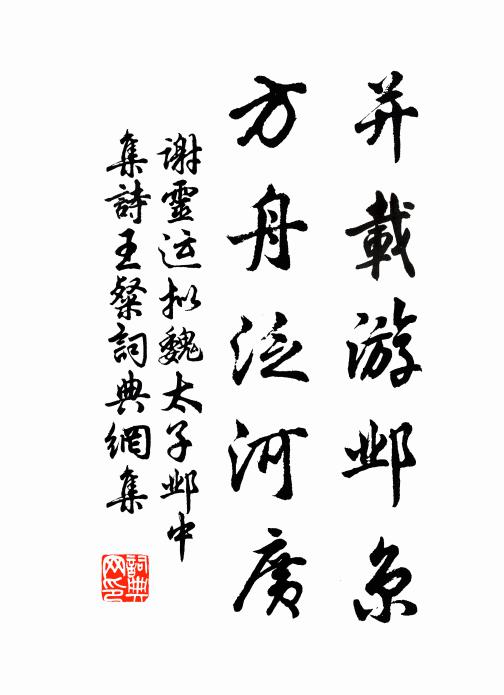 并載游邺京
方舟泛河廣
謝靈运拟魏太子邺中
集詩王粲詞典網集
詞典网印